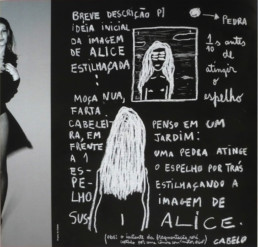 BREVE DESCRIÇÃO P/
IDEIA INICIAL
DA IMAGEM
DE ALICE
ESTILHAÇADA
!
PEDRA
1/10 s antes
de
atingir
o
espelho
MOÇA NUA,
FARTA
CABELEI
RA, EM
FRENTE
A 1
ES-
PE-
LHO
SUS
PENSO EM UM
JARDIM:
UMA PEDRA ATINGE
O ESPELHO POR TRÁS
ESTILHAÇANDO A
IMAGEM DE
ALICE.
CABELO